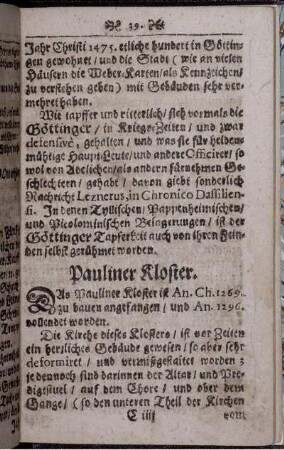 39.
Jahr Christi 1475. etliche hundert in Götting-
gen gewohnet / und die Stadt ( wie an vielen
Häusern die Weber-Karten / als Kennzeichen /
zu verstehen geben ) mit Gebäuden sehr ver-
mehret haben.
Wie tapffer und ritterlich / sich vormals die
Göttinger / in Kriegs-Zeiten / und zwar
defensivè, gehalten / und was sie für helden-
mühtige Haupt-Leute / und andere Officirer / so
wol von Adelichen / als andern fürnehmen Ge-
schlechtern / gehabt / davon giebt sonderlich
Nachricht Leznerus, in Chronico Dassilien-
si. In denen Tyllischen / Pappenheimischen /
und Picolominischen Belagerungen / ist der
Göttinger Tapferkeit auch von ihren Fein-
den selbst gerühmet worden.
Pauliner Kloster.
DAs Pauliner Kloster ist An. Ch. 1269.
zu bauen angefangen / und An. 1296.
vollendet worden.
Die Kirche dieses Klosters / ist vor Zeiten
ein herrliches Gebäude gewesen / so aber sehr
deformiret / und vermißgestaltet worden ;
jedennoch sind darinnen der Altar / und Pre-
digstuel / auf dem Chore / und ober dem
Gange / ( so den unteren Theil der Kirchen
C iiij vom